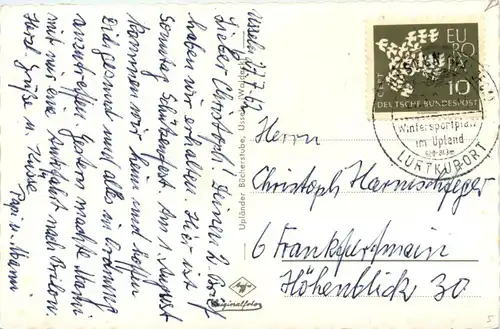 Usseln 27.7.62
Lieber Christoph! Deinen 2. Brief
haben wir erhalten. Hier ist
Sonntag Schützenfest. Am 1. August
kommen wir heim und hoffen
Dich gesund und alles in Ordnung
anzutreffen. Gestern machte Mami
mit mir eine Autofahrt nach Brilon.
Herzl. Grüße u. Küsse
Papi u. Mami
Upländer Bücherstube, Usseln, Waldeck
Originalfoto
EUROPA
CEPT
10
DEUTSCHE BUNDESPOST
Wintersportplatz
im Upland
LUFTKURORT
Herrn
Christoph Harnischfeger
6 Frankfurt/main
Höhenblick 30
5